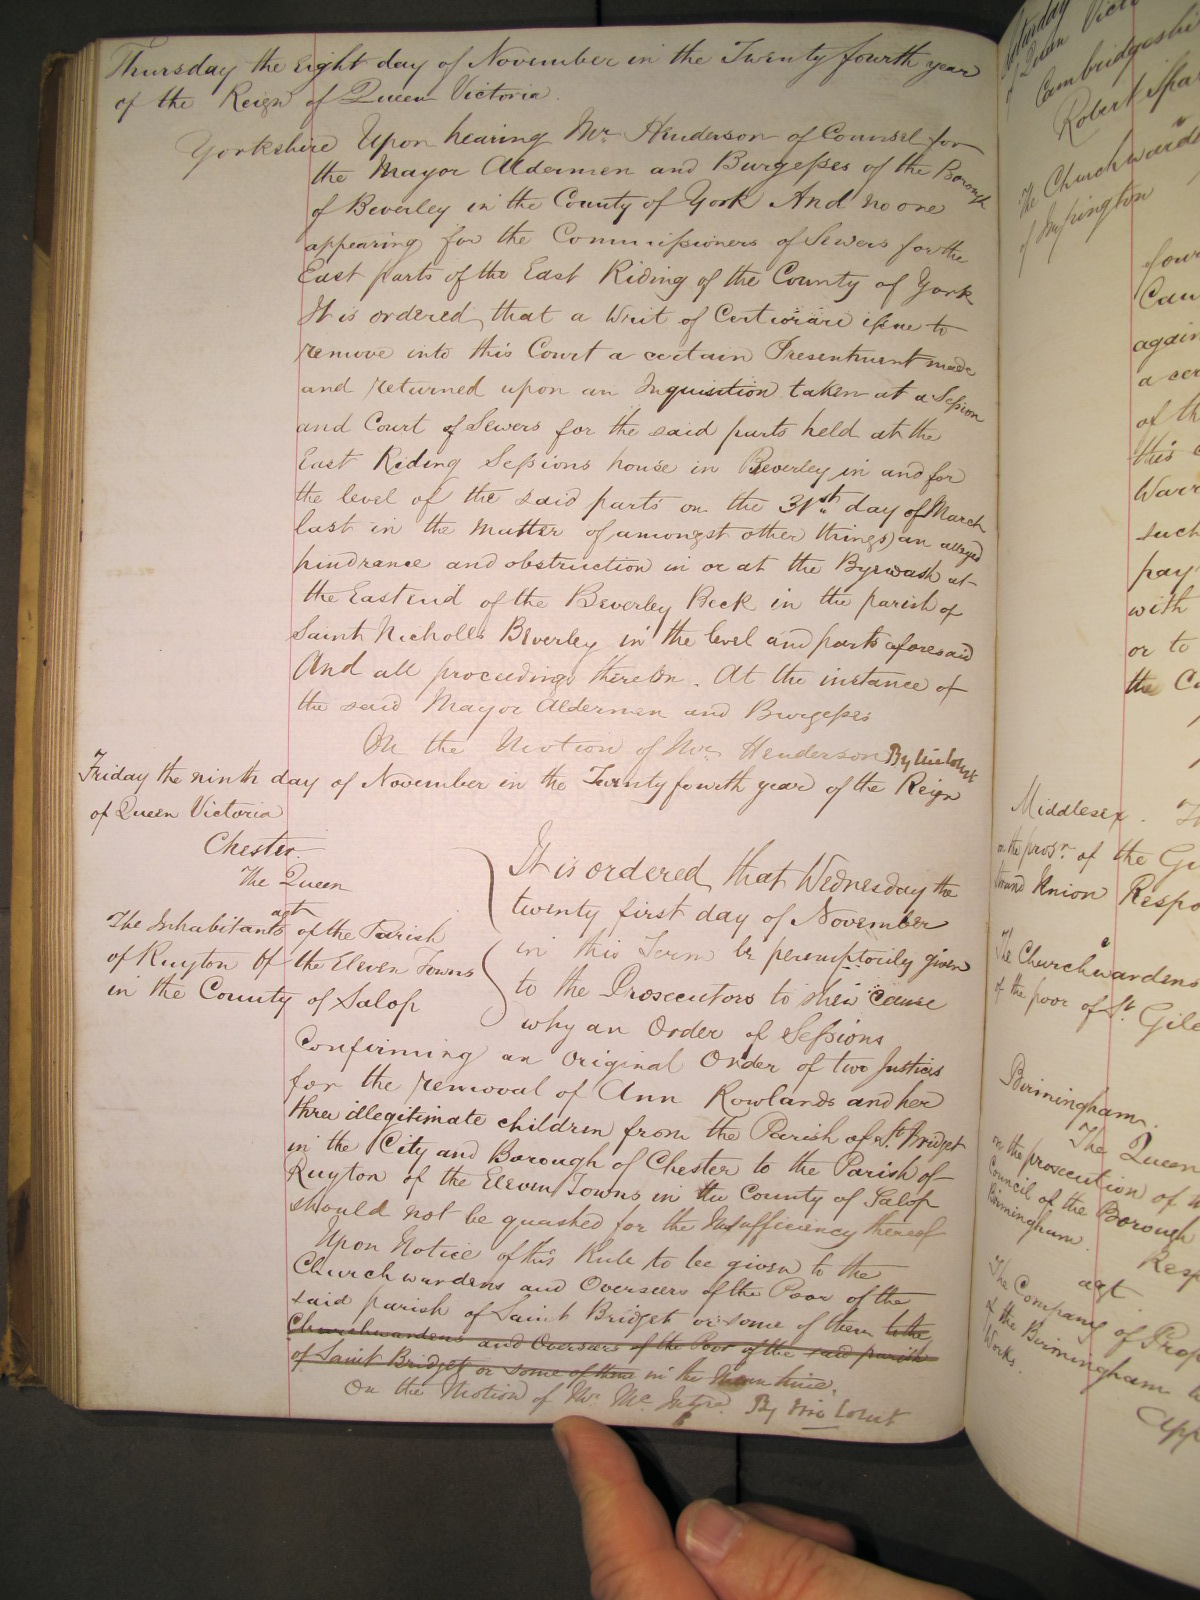 Thursday the eight day of November in the Twenty fourth year
of the Reign of Queen Victoria
Yorkshire Upon hearing Mr. Henderson of Counsel for
the Mayor Aldermen and Burgesses of the Borough
of Beverley in the County of York And no one
appearing for the Commissioners of Sewers for the
East parts of the East Riding of the County of York
It is ordered that a Writ of Certiorari issue to
remove into this Court a certain Presentment made
and returned upon an Inquisition taken at a Session
and Court of Sewers for the said parts held at the
East Riding Sessions house in Beverley in and for
the level of the said parts on the 31st day of March
last in the matter of amongst other things) an alleged
hindrance and obstruction in or at the Byewash at
the East end of the Beverley Beck in the parish of
Saint Nicholls Beverley in the level and parts aforesaid
And all proceedings thereon. At the instance of
the said Mayor Aldermen and Burgesses
On the Motion of Mr. Henderson By the Court
Friday the ninth day of November in the Twenty fourth year of the Reign
of Queen Victoria
Chester.
The Queen
agt
The Inhabitants of the Parish
of Ruyton of the Eleven Towns
in the County of Salop
It is ordered that Wednesday the
twenty first day of November
in this Term be peremptorily given
to the Prosecutors to shew cause
why an Order of Sessions
Confirming an original Order of two Justices
for the removal of Ann Rowlands and her
three illegitimate children from the Parish of St. Bridget
in the City and Borough of Chester to the Parish of
Ruyton of the Eleven Towns in the County of Salop
should not be quashed for the Insufficiency thereof
Upon Notice of this Rule to be given to the
Churchwardens and Overseers of the Poor of the
said parish of Saint Bridget or some of them to the
Churchwardens and Overseers of the Poor of the said parish
of Saint Bridget or some of them in the Mean time.
On the Motion of Mr. By the Court
Saturday
of Queen Victo
Cambridgeshi
Robert Spa
The Churchwarde
of Impington
four
Cam
again
a cer
of th
this c
Warr
such
pay
with
or to
the Co
Middlesex. Th
on the prosn. of the Gu
Strand Union Respo
The Churchwardens
of the poor of St. Gile
Birmingham.
The Queen
on the prosecution of
Council of the Borough
Birmingham.
Resp
agt
The Company of Prop
of the Birmingham
Works.
App